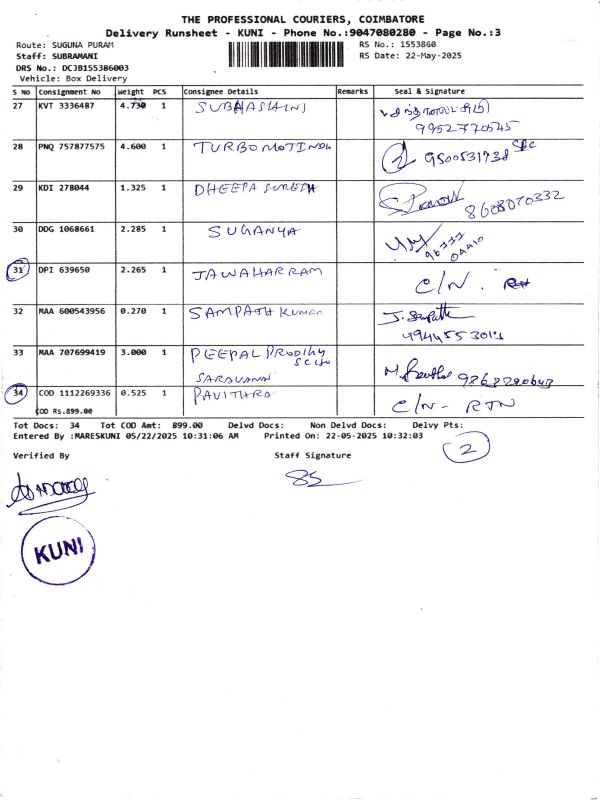 THE PROFESSIONAL COURIERS, COIMBATORE
Delivery Runsheet - KUNI - Phone No.:9047080280 - Page No.:3
Route: SUGUNA PURAM RS No.: 1553860
Staff: SUBRAMANI RS Date: 22-May-2025
DRS No.: DCJB155386003
Vehicle: Box Delivery
S No Consignment No Weight PCS Consignee Details Remarks Seal & Signature
27 KVT 3336487 4.730 1 SUBHASHINI
9952770545
28 PNQ 757877575 4.600 1 TURBO MOTINDU 9500531738
29 KDI 278044 1.325 1 DHEEPA SURESH 8608070332
30 DDG 1068661 2.285 1 SUGANYA
31 DPI 639650 2.265 1 JAWAHAR RAM C/N.
32 MAA 600543956 0.270 1 SAMPATH KUMAR J. Sampath
33 MAA 707699419 3.000 1 PEEPAL PRODIGY
SCHO
SARAVANAN
34 COD 1112269336 0.525 1 PAVITHRA C/N - RTN
COD Rs.899.00
Tot Docs: 34 Tot COD Amt: 899.00 Delvd Docs: Non Delvd Docs: Delvy Pts:
Entered By :MARESKUNI 05/22/2025 10:31:06 AM Printed On: 22-05-2025 10:32:03
2
Verified By Staff Signature
KUNI